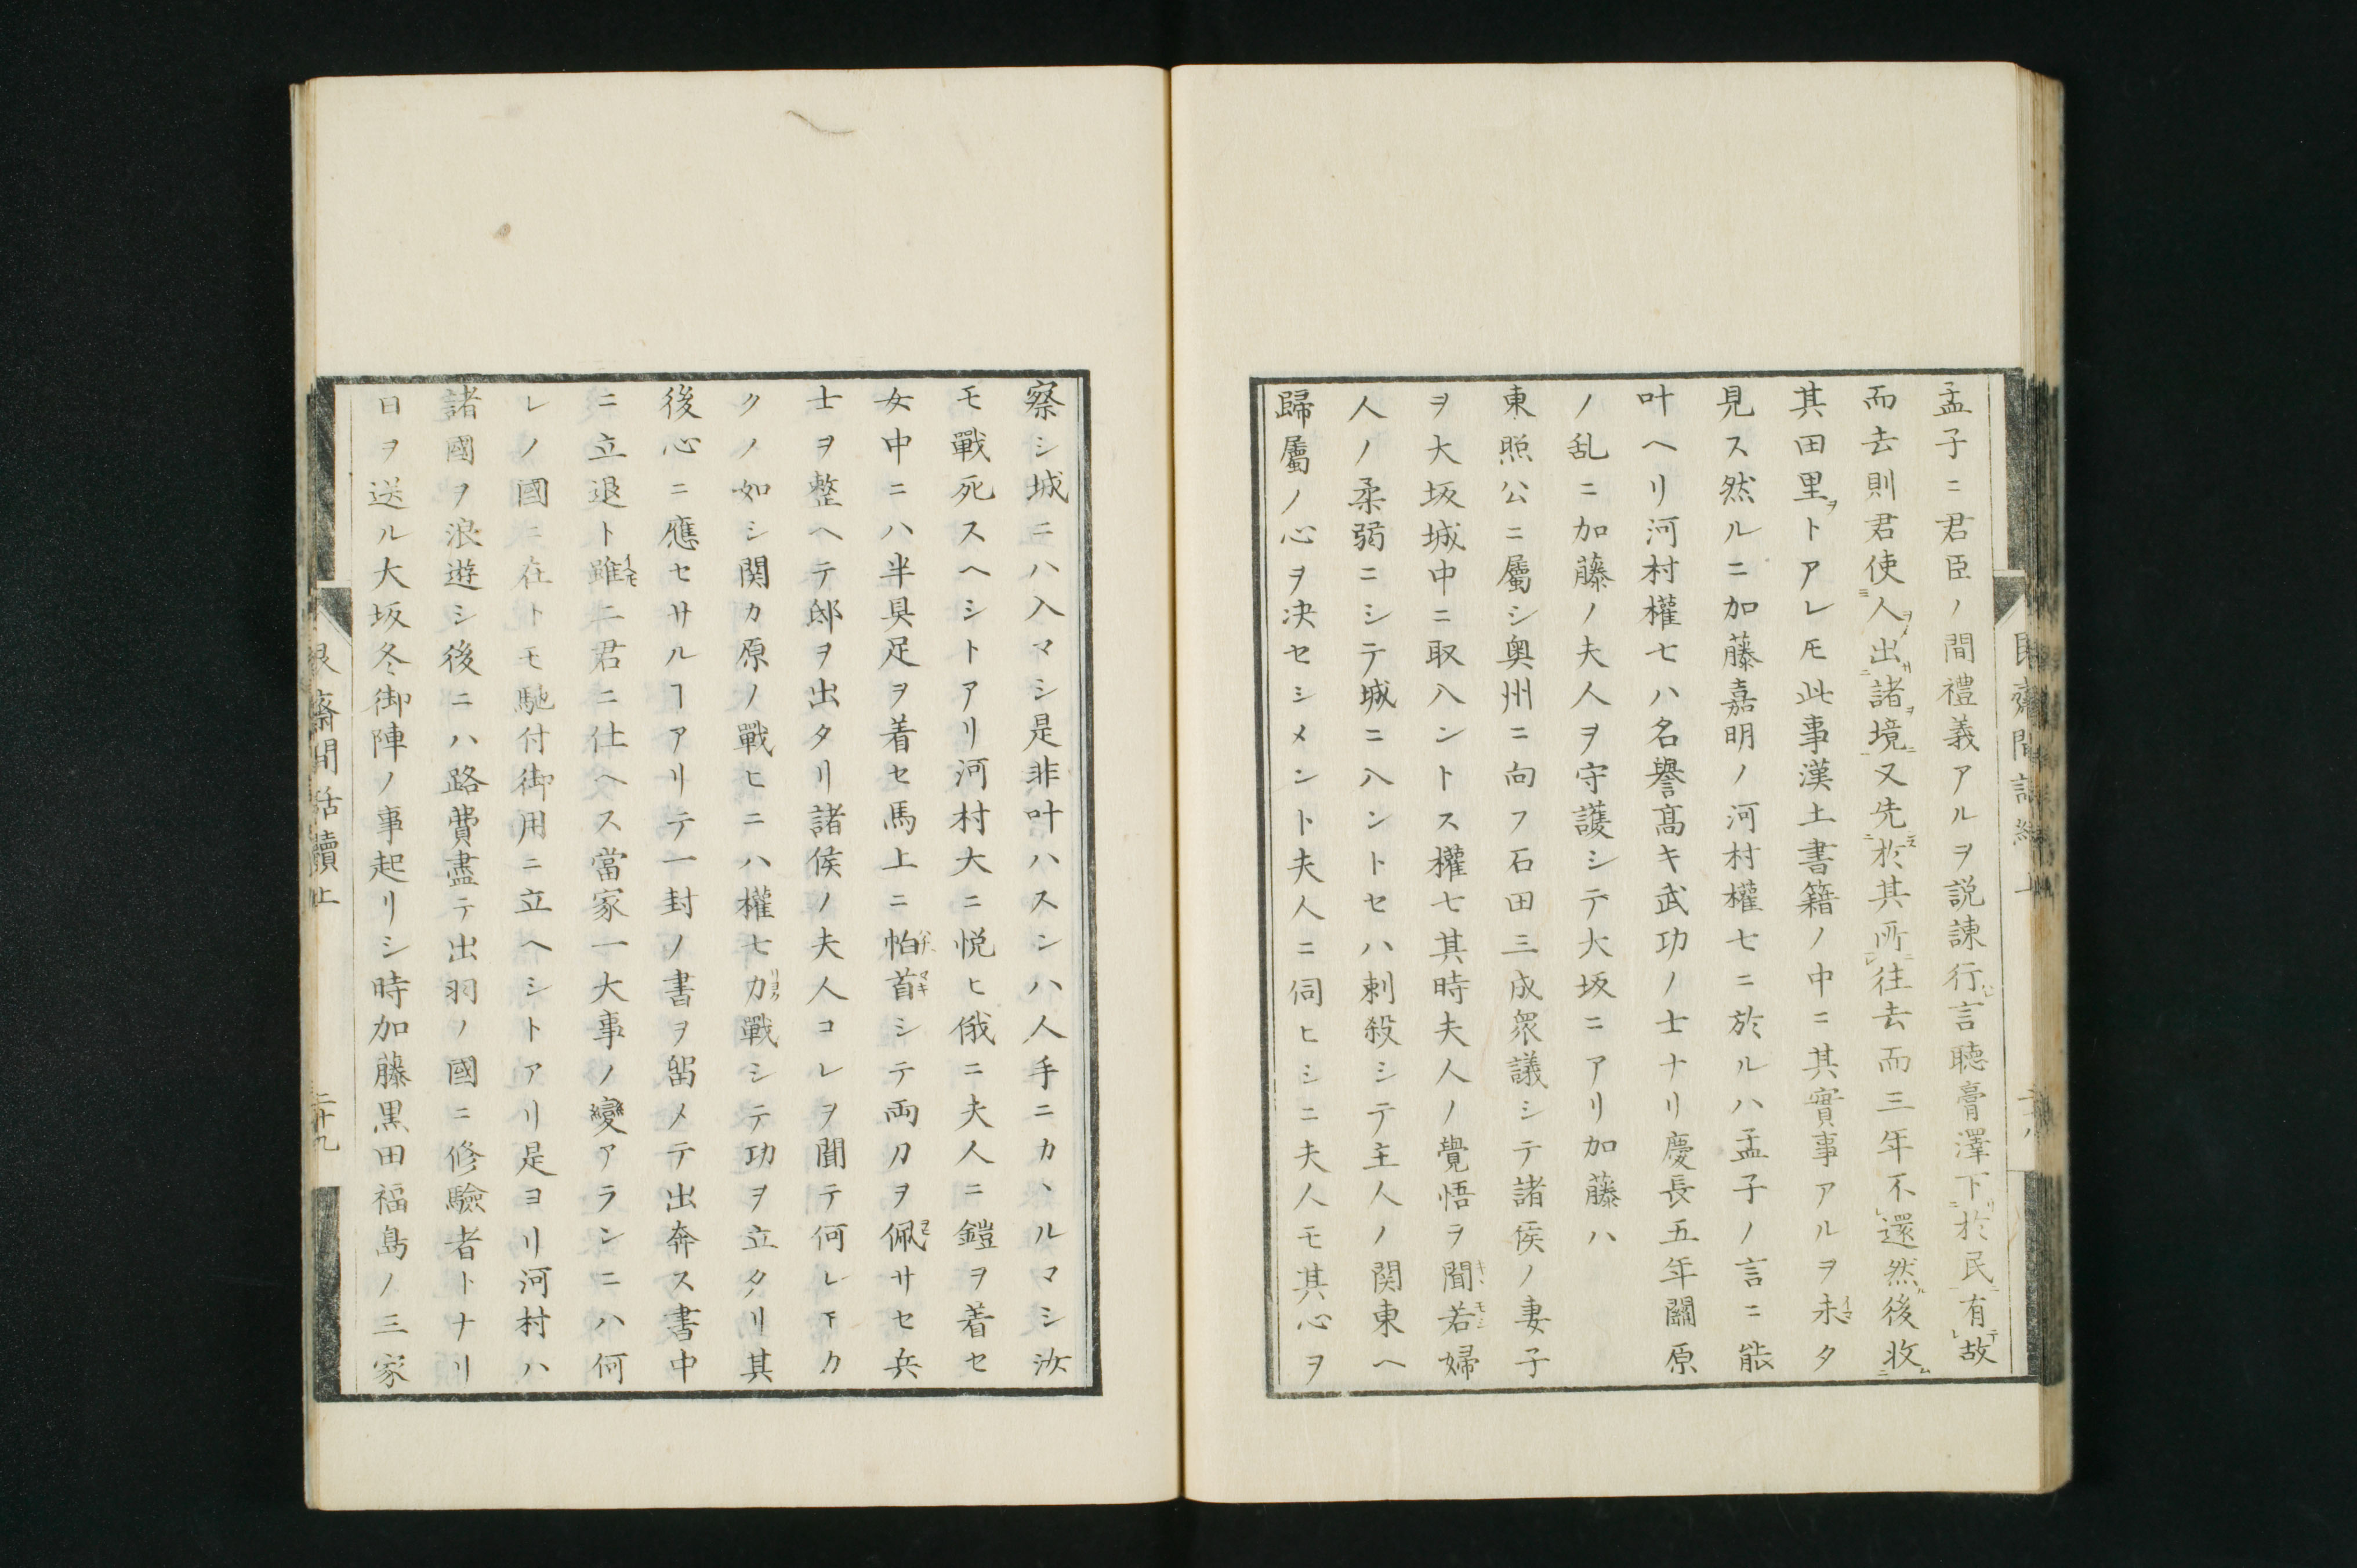 孟子ニ君臣ノ間禮義アルヲ説諫行言聴膏澤下於民有故
而去則君使人出諸境又先於其所往去而三年不還然後收
其田里トアレ𪜈此事漢土書籍ノ中ニ其實事アルヲ未タ
見ス然ルニ加藤嘉明ノ河村權七ニ於ルハ孟子ノ言ニ能
叶ヘリ河村權七ハ名譽髙キ武功ノ士ナリ慶長五年關原
ノ乱ニ加藤ノ夫人ヲ守護シテ大坂ニアリ加藤ハ
東照公ニ屬シ奥州ニ向フ石田三成衆議シテ諸侯ノ妻子
ヲ大坂城中ニ取入ントス權七其時夫人ノ覺悟ヲ聞若婦
人ノ柔弱ニシテ城ニ入ントセハ刺殺シテ主人ノ関東ヘ
歸屬ノ心ヲ决セシメント夫人ニ伺ヒシニ夫人モ其心ヲ
察シ城ニハ入マシ是非叶ハスンハ人手ニカヽルマシ汝
モ戰死スヘシトアリ河村大ニ悦ヒ俄ニ夫人ニ鎧ヲ着セ
女中ニハ半具足ヲ着セ馬上ニ帕首シテ両刀ヲ佩サセ兵
士ヲ整ヘテ邸ヲ出タリ諸侯ノ夫人コレヲ聞テ何レモカ
クノ如シ関カ原ノ戰ヒニハ權七力戰シテ功ヲ立タリ其
後心ニ應セサルヿアリテ一封ノ書ヲ留メテ出奔ス書中
ニ立退ト雖二君ニ仕ヘス當家一大事ノ變アランニハ何
レノ國ニ在トモ馳付御用ニ立ヘシトアリ是ヨリ河村ハ
諸國ヲ浪遊シ後ニハ路費盡テ出羽ノ國ニ修驗者トナリ
日ヲ送ル大坂冬御陣ノ事起リシ時加藤黒田福島ノ三家
艮齋間話續上
二十九